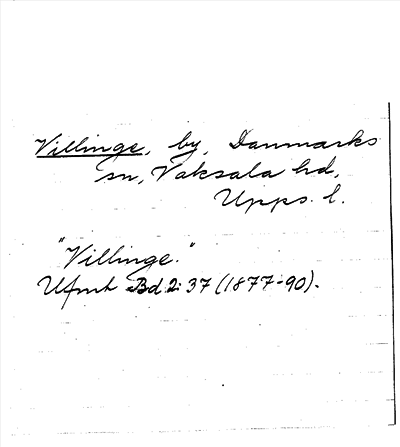 Villinge, by, Danmarks
sn, Vaksala hd,
Upps. l.
"Villinge."
Ufmt Bd 2: 37 (1877-90).